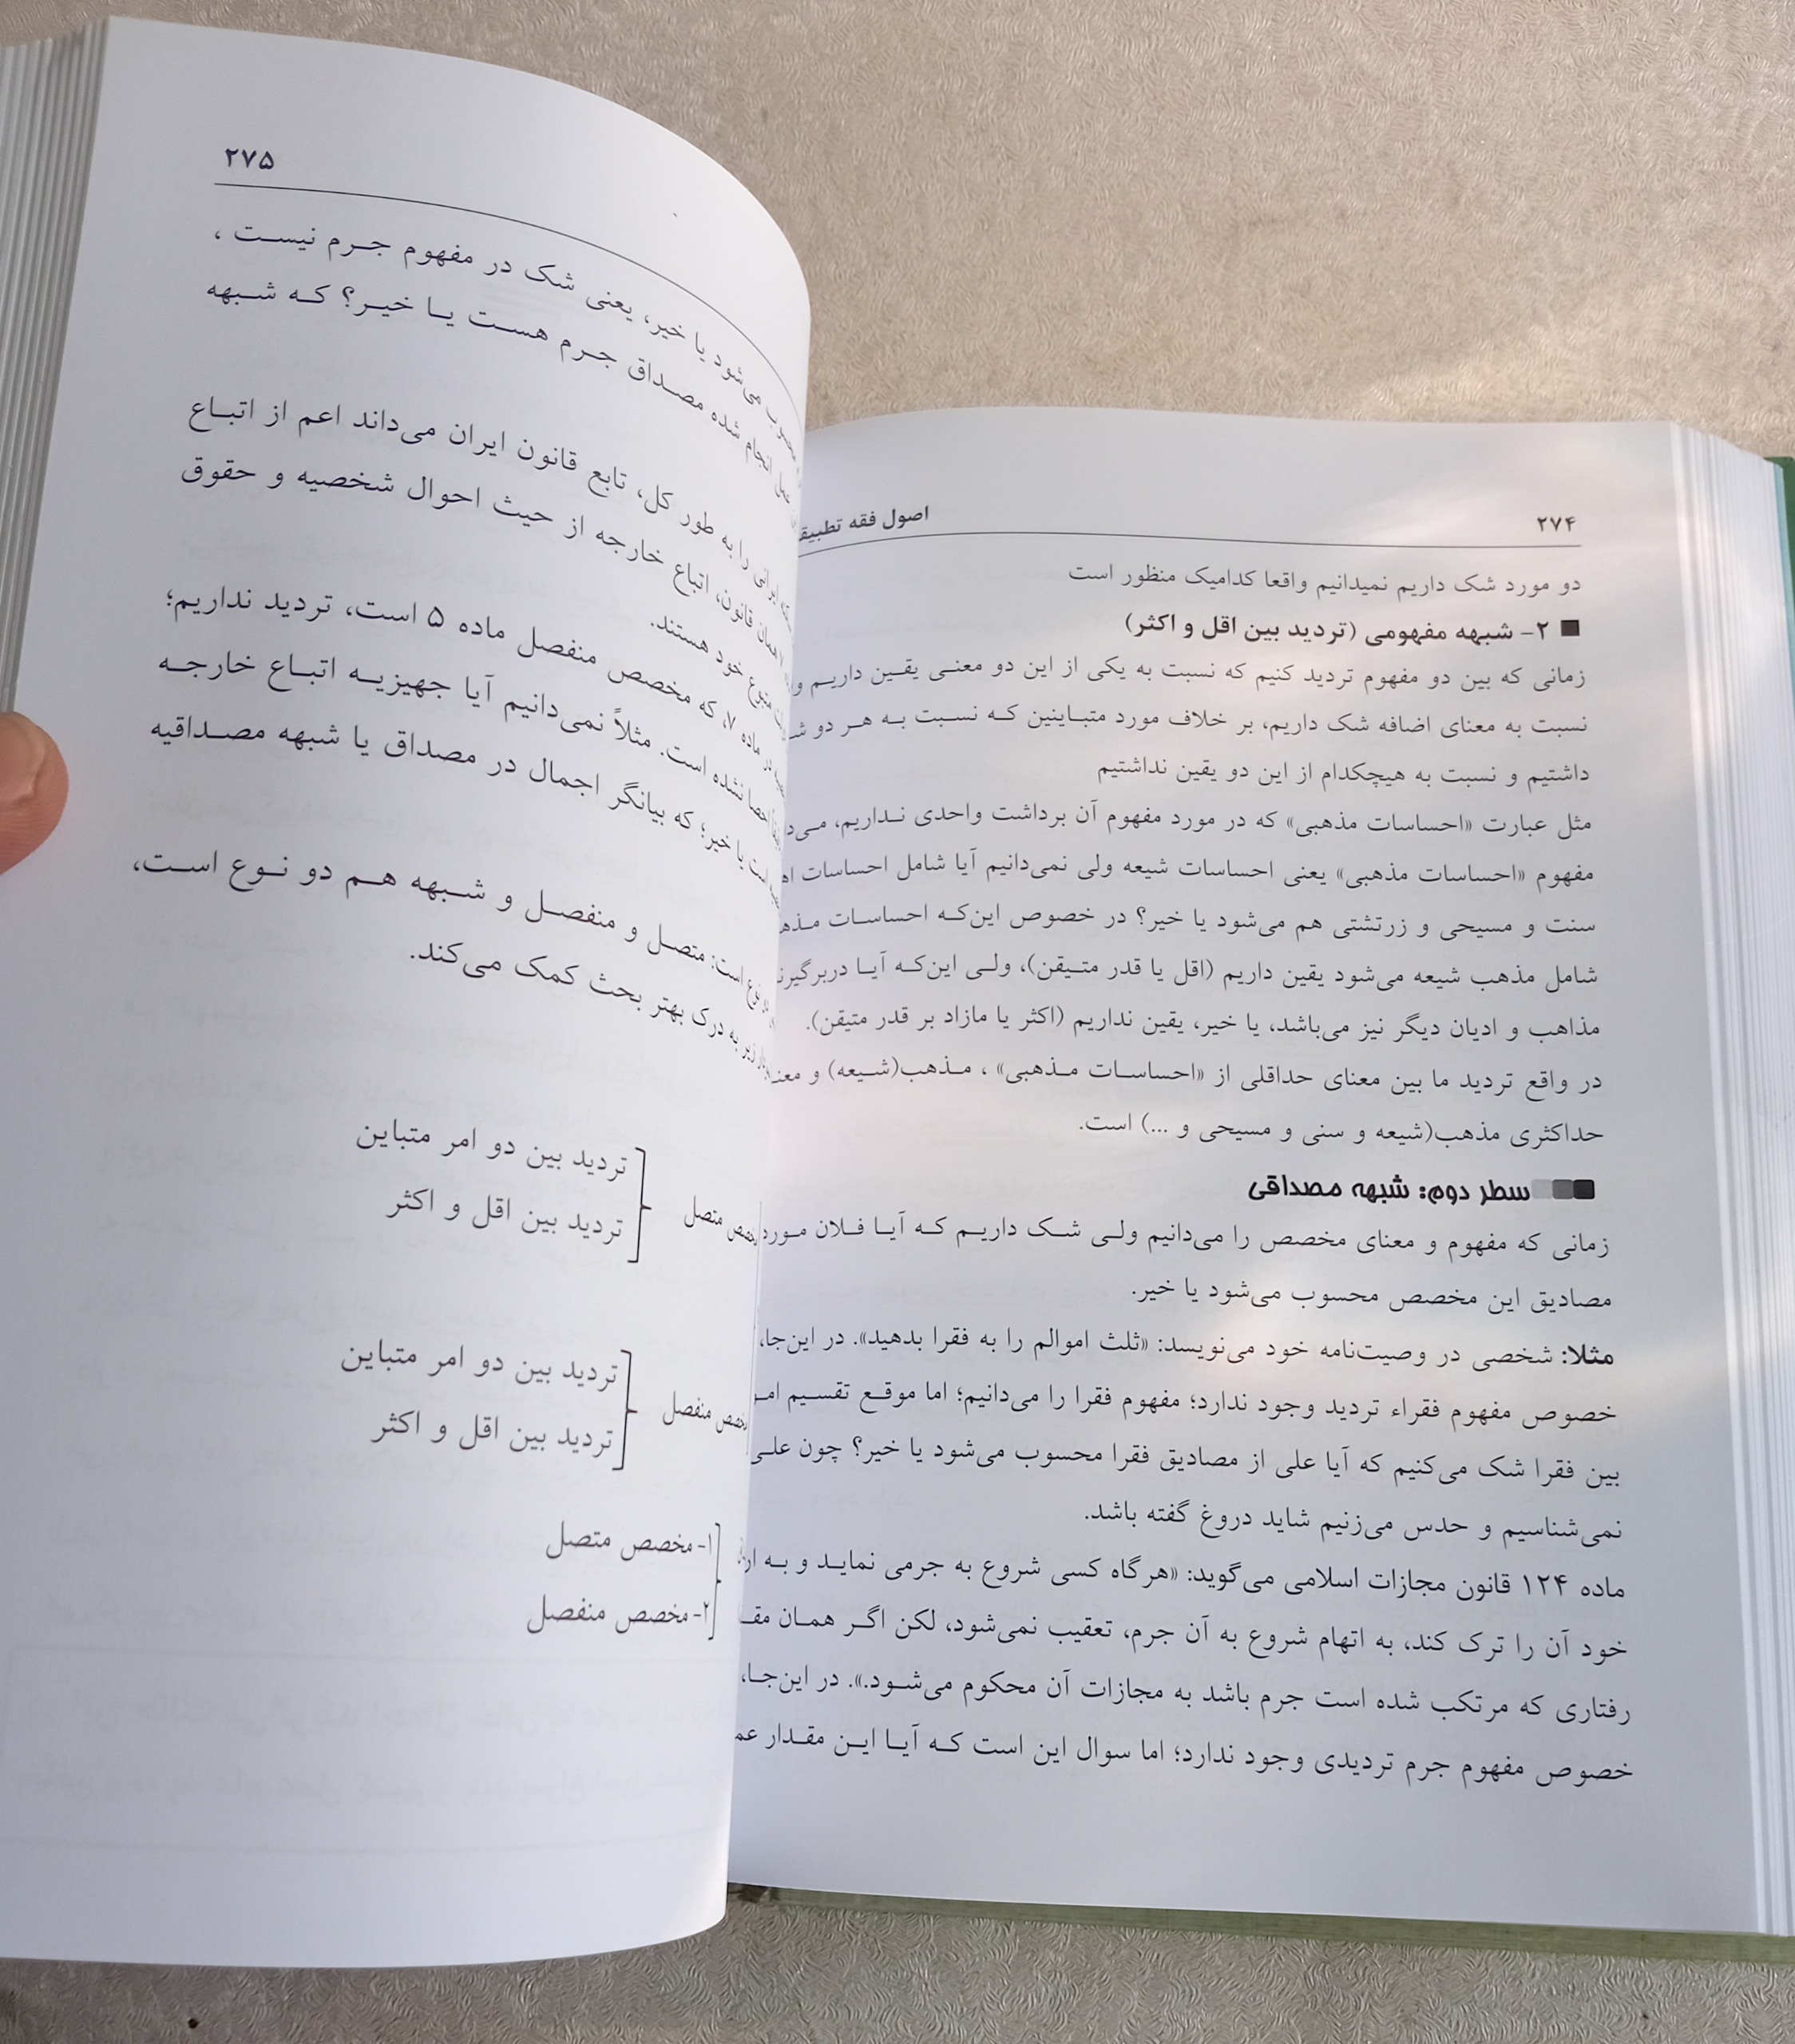 ۲۷۴
اصول فقه
دو مورد شک داریم نمیدانیم واقعا کدامیک منظور است
۲- شبهه مفهومی (تردید بین اقل و اکثر)
زمانی که بین دو مفهوم تردید کنیم که نسبت به یکی از این دو معنـی یقـین داریـم
نسبت به معنای اضافه شک داریم، بر خلاف مورد متبـاینین کـه نسـبت بـه هـر دو
داشتیم و نسبت به هیچکدام از این دو یقین نداشتیم
مثل عبارت «احساسات مذهبی» که در مورد مفهوم آن برداشت واحدی نـداریم،
مفهوم «احساسات مذهبی» یعنی احساسات شیعه ولی نمی‌دانیم آیا شامل احساسات
سنت و مسیحی و زرتشتی هم می‌شود یا خیر؟ در خصوص این‌کـه احساسـات
شامل مذهب شیعه می‌شود یقین داریم (اقل یا قدر متـیقن)، ولـی این‌کـه آیـا
مذاهب و ادیان دیگر نیز می‌باشد، یا خیر، یقین نداریم (اکثر یا مازاد بر قدر متیقن).
در واقع تردید ما بین معنای حداقلی از «احساسـات مـذهبی» ، مـذهب(شـیعه) و
حداکثری مذهب(شیعه و سنی و مسیحی و ...) است.
سطر دوم: شبهه مصداقی
زمانی که مفهوم و معنای مخصص را می‌دانیم ولـی شـک داریـم کـه آیـا فـلان مـورد
مصادیق این مخصص محسوب می‌شود یا خیر.
مثلا: شخصی در وصیت‌نامه خود می‌نویسد: «ثلث اموالم را به فقرا بدهید». در این‌جا،
خصوص مفهوم فقراء تردید وجود ندارد؛ مفهوم فقرا را می‌دانیم؛ اما موقـع تقسـیم
بین فقرا شک می‌کنیم که آیا علی از مصادیق فقرا محسوب می‌شود یا خیر؟ چون علـی
نمی‌شناسیم و حدس می‌زنیم شاید دروغ گفته باشد.
ماده ۱۲۴ قانون مجازات اسلامی می‌گوید: «هرگاه کسی شروع به جرمی نمایـد و بـه
خود آن را ترک کند، به اتهام شروع به آن جرم، تعقیب نمی‌شود، لکن اگـر همـان
رفتاری که مرتکب شده است جرم باشد به مجازات آن محکوم می‌شـود.». در این‌جـا،
خصوص مفهوم جرم تردیدی وجود ندارد؛ اما سوال این است کـه آیـا ایـن مقـدار
۲۷۵
می‌شود یا خیر، یعنی شک در مفهوم جـرم نیسـت ،
انجام شده مصـداق جـرم هسـت یـا خیـر؟ کـه شـبهه
را به طور کل، تابع قانون ایران می‌داند اعم از اتبـاع
همان قانون، اتباع خارجه از حیث احوال شخصیه و حقوق
متبوع خود هستند.
ماده ۷، که مخصص منفصل ماده ۵ است، تردید نداریم؛
احصا نشده است. مثلاً نمی‌دانیم آیا جهیزیـه اتبـاع خارجـه
است یا خیر؛ که بیانگر اجمال در مصداق یا شبهه مصـداقیه
نوع است: متصـل و منفصـل و شـبهه هـم دو نـوع اسـت،
زیر به درک بهتر بحث کمک می‌کند.
مخصص متصل
تردید بین دو امر متباین
تردید بین اقل و اکثر
مخصص منفصل
تردید بین دو امر متباین
تردید بین اقل و اکثر
۱- مخصص متصل
۲- مخصص منفصل